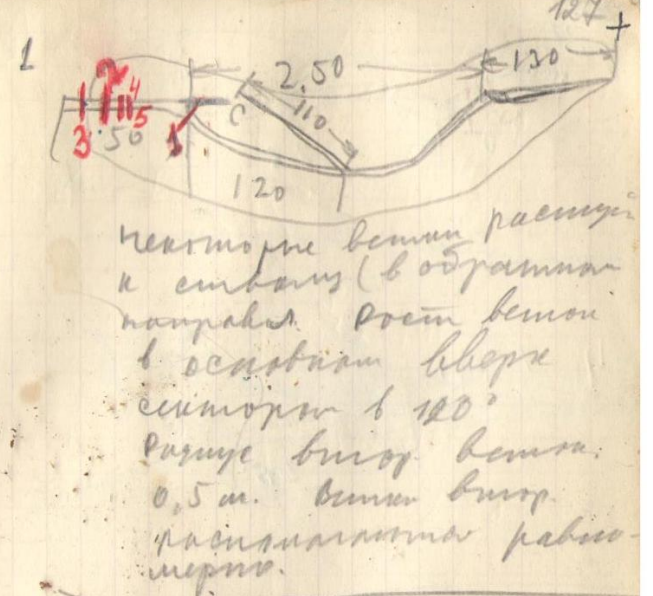 127
1
2.50
130
110
C
2 4
3 5 1
50
120
некоторые ветки растут
к стволу (в обратном
направл. Рост веток
в основном вверх
сектором в 120°
Радиус втор. веток.
0,5 м. Ветки втор.
располагаются равно-
мерно.